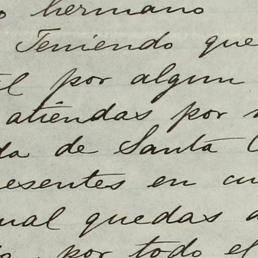 o hermano
Teniendo que
él por algun
atiendas por
da de Santa C
esentes en cu
ual quedas a
por todo el